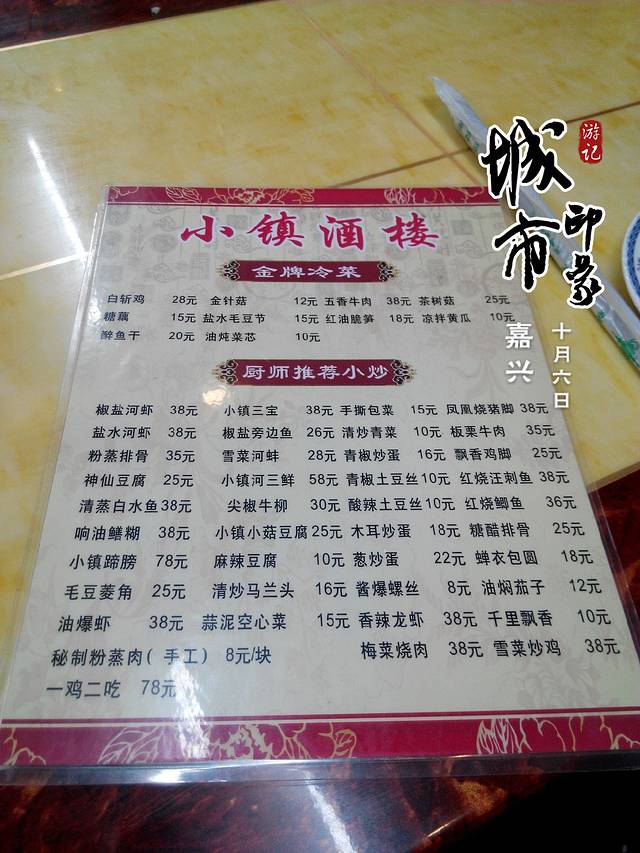 小镇酒楼
金牌冷菜
白斩鸡 28元 金针菇 12元 五香牛肉 38元 茶树菇 25元
糖藕 15元 盐水毛豆节 15元 红油脆笋 18元 凉拌黄瓜 10元
醉鱼干 20元 油炖菜芯 10元
厨师推荐小炒
椒盐河虾 38元 小镇三宝 38元 手撕包菜 15元 凤凰烧猪脚 38元
盐水河虾 38元 椒盐旁边鱼 26元 清炒青菜 10元 板栗牛肉 35元
粉蒸排骨 35元 雪菜河蚌 28元 青椒炒蛋 16元 飘香鸡脚 25元
神仙豆腐 25元 小镇河三鲜 58元 青椒土豆丝 10元 红烧汪刺鱼 38元
清蒸白水鱼 38元 尖椒牛柳 30元 酸辣土豆丝 10元 红烧鲫鱼 36元
响油鳝糊 38元 小镇小菇豆腐 25元 木耳炒蛋 18元 糖醋排骨 25元
小镇蹄膀 78元 麻辣豆腐 10元 葱炒蛋 22元 蝉衣包圆 18元
毛豆菱角 25元 清炒马兰头 16元 酱爆螺丝 8元 油焖茄子 12元
油爆虾 38元 蒜泥空心菜 15元 香辣龙虾 38元 千里飘香 10元
秘制粉蒸肉(手工) 8元/块 梅菜烧肉 38元 雪菜炒鸡 38元
一鸡二吃 78元
城市印象
游记
嘉兴
十月六日